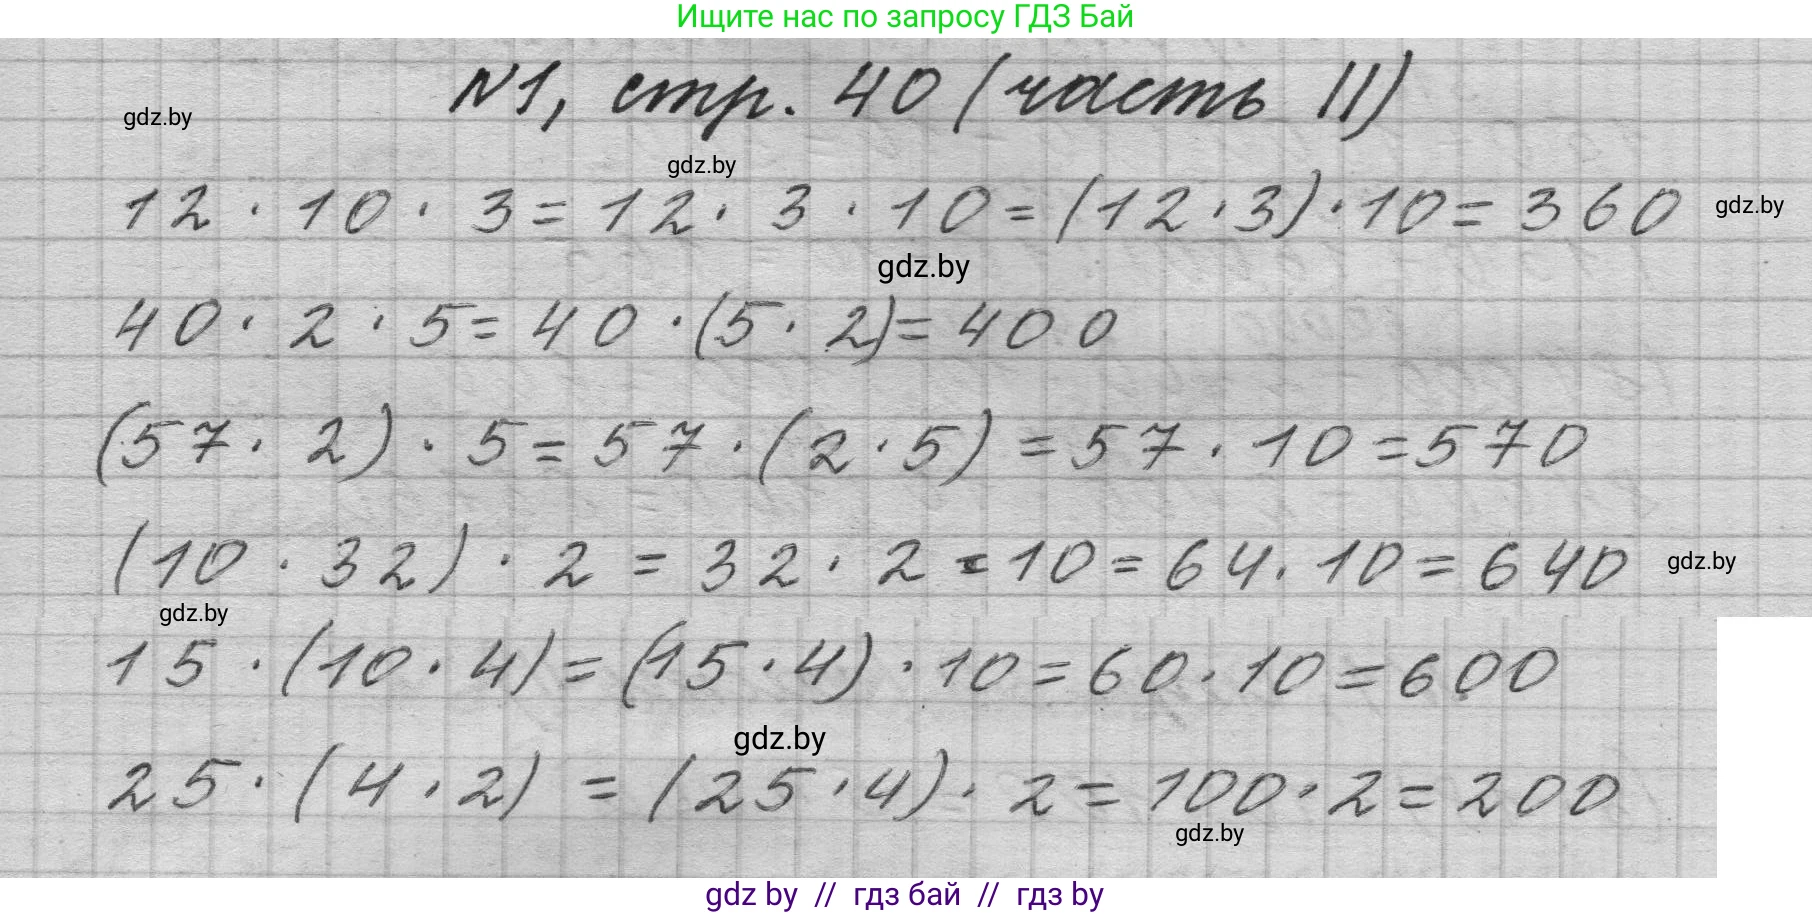 Ищите нас по запросу ГДЗ Бай
№1, стр. 40 (часть II)
gdz.by
gdz.by
12 · 10 · 3 = 12 · 3 · 10 = (12 · 3) · 10 = 360
gdz.by
gdz.by
40 · 2 · 5 = 40 · (5 · 2) = 400
(57 · 2) · 5 = 57 · (2 · 5) = 57 · 10 = 570
(10 · 32) · 2 = 32 · 2 · 10 = 64 · 10 = 640
gdz.by
gdz.by
15 · (10 · 4) = (15 · 4) · 10 = 60 · 10 = 600
gdz.by
25 · (4 · 2) = (25 · 4) · 2 = 100 · 2 = 200
gdz.by
gdz by // гдз бай // гдз by